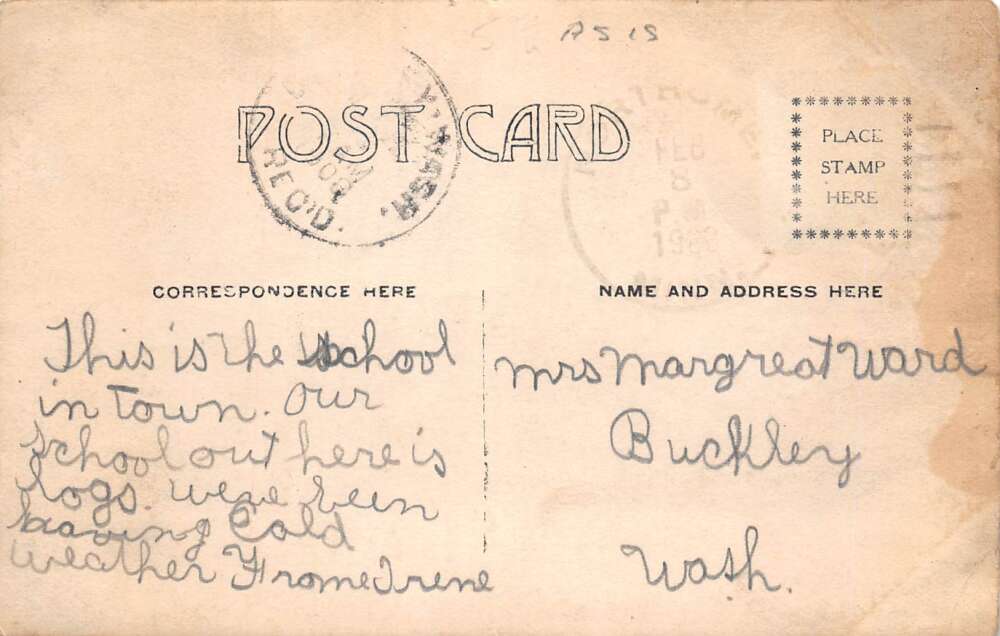 AS IS
POST CARD
WASH.
REC'D.
FEB
8
P.M.
PLACE
STAMP
HERE
CORRESPONDENCE HERE
This is the school
in Town. Our
school out here is
logs. weve been
having Cold
weather Frome Irene
NAME AND ADDRESS HERE
Mrs Margreat Ward
Buckley
Wash.